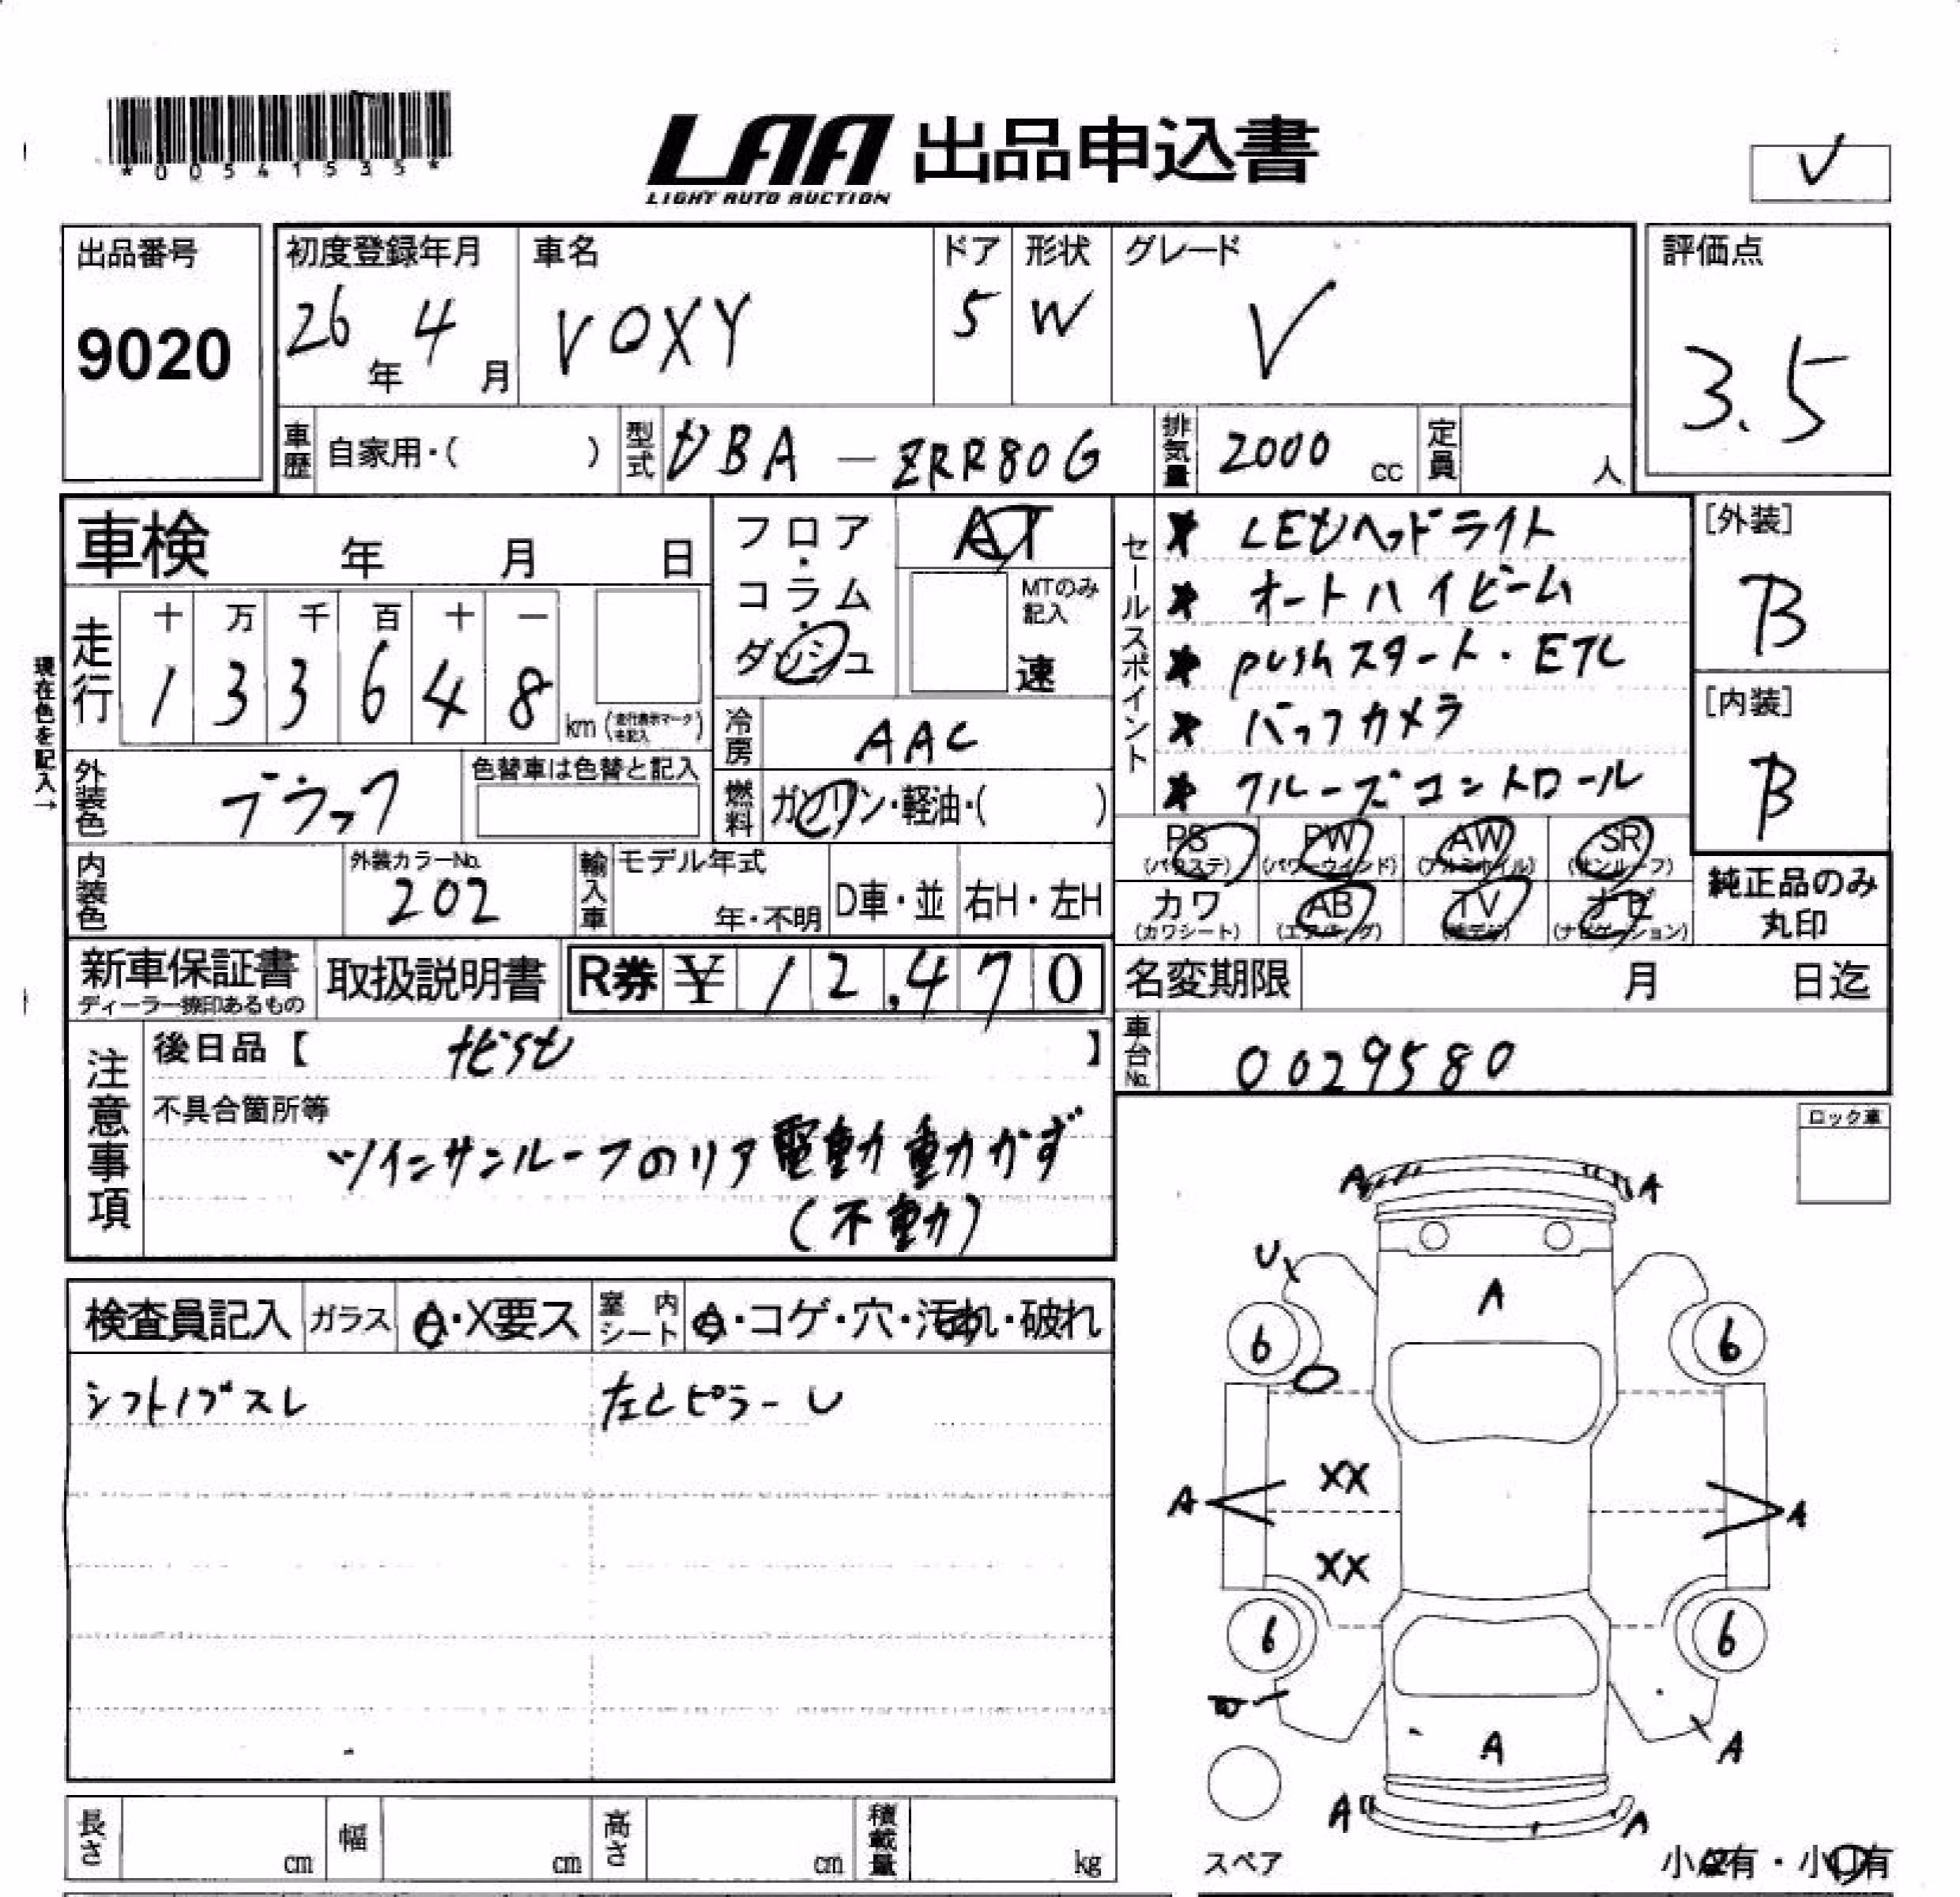 *00541535*
LAA 出品申込書
LIGHT AUTO AUCTION
V
出品番号
9020
初度登録年月
26年 4月
車名
VOXY
ドア
5
形状
W
グレード
V
評価点
3.5
車歴 自家用・( )
型式 DBA-ZRR80G
排気量 2000 cc
定員 人
車検 年 月 日
現在色を記入→
走行
十 万 千 百 十 一
1 3 3 6 4 8 km
フロア・コラム・ダッシュ
AT
MTのみ記入
速
冷房 AAC
燃料 ガソリン・軽油・( )
外装色 ブラック
色替車は色替と記入
内装色
外装カラーNo.
202
輸入車
モデル年式
年・不明
D車・並
右H・左H
セールスポイント
LEDヘッドライト
オートハイビーム
pushスタート・ETC
バックカメラ
クルーズコントロール
[外装]
B
[内装]
B
PS PW AW SR
(パワステ) (パワーウインド) (アルミホイル) (サンルーフ)
カワ AB TV ナビ
(カワシート) (エアバッグ) (ナビゲーション)
純正品のみ
丸印
新車保証書
取扱説明書
R券 ¥12,470
名変期限 月 日迄
車台No. 0029580
注意事項
後日品【 ナビSD 】
不具合箇所等
ツインサンルーフのリア電動動かず
(不動)
ロック車
検査員記入 ガラス A・X要ス 室内シート A・コゲ・穴・汚れ・破れ
シフトノブスレ
左Cピラー U
A A
U
A
6 6
XX
A A
XX
6 6
A A
A A
スペア
長さ cm
幅 cm
高さ cm
積載量 kg